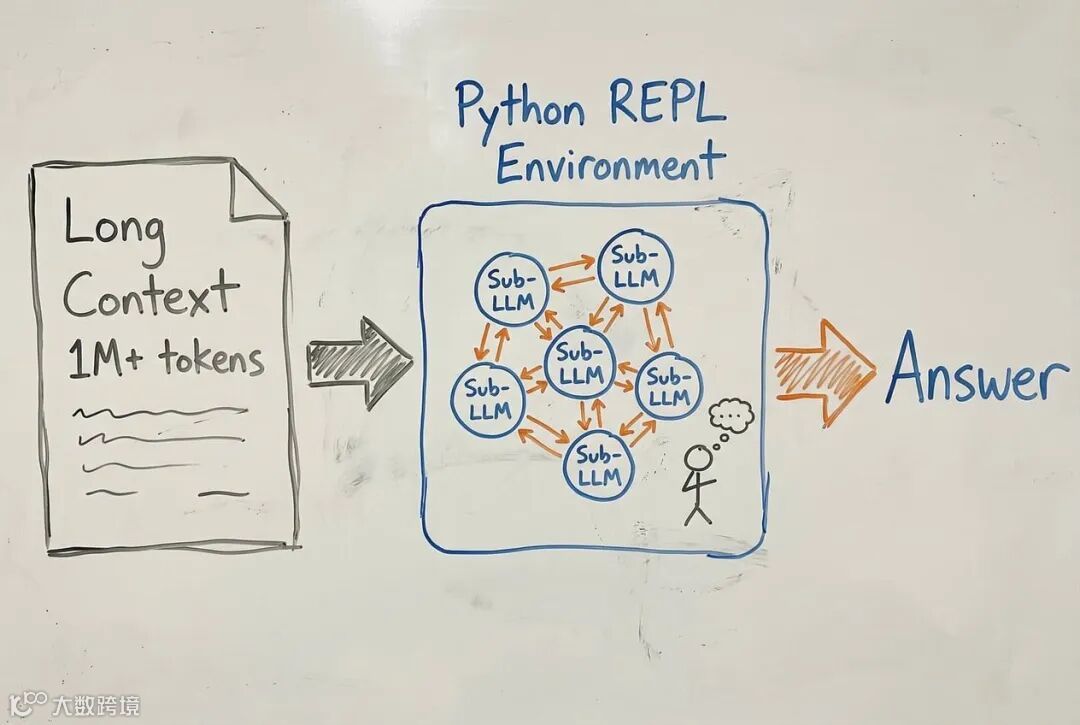 Python REPL
Environment
Long
Context
1M+ tokens
Sub-
LLM
Sub-
LLM
Sub-
LLM
Sub-
LLM
Sub-
LLM
Sub-
LLM
...
Answer
大数跨境